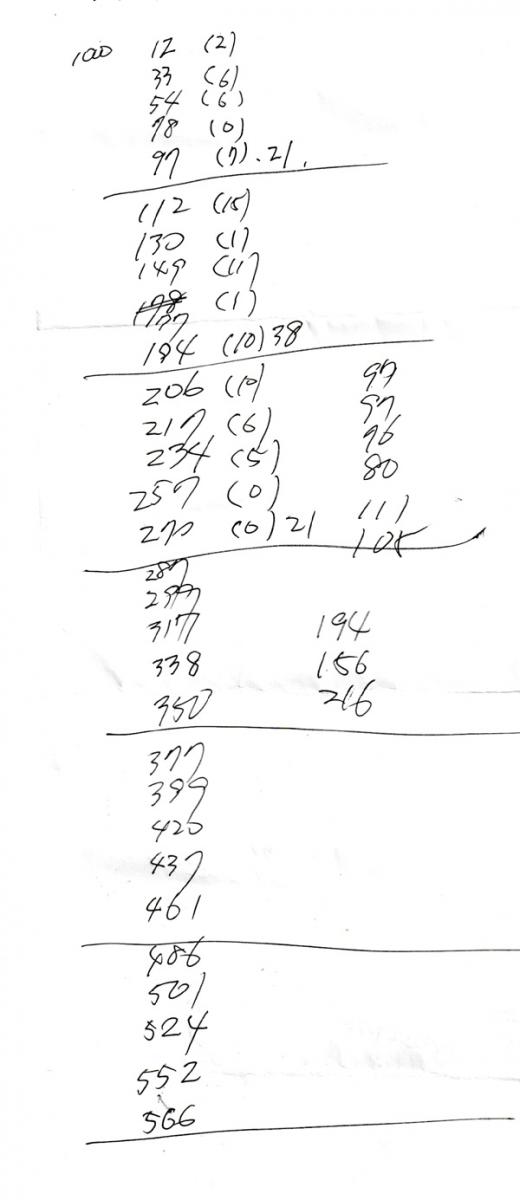 1000 12 (2)
33 (6)
54 (6)
78 (0)
97 (7).21.
112 (15)
130 (1)
149 (11)
(1)
194 (10) 38
206 (10) 97
217 (6) 97
234 (5) 96
257 (0) 80
270 (0) 21 111
105
287
297
317 194
338 156
350 216
377
399
420
437
461
486
501
524
552
566